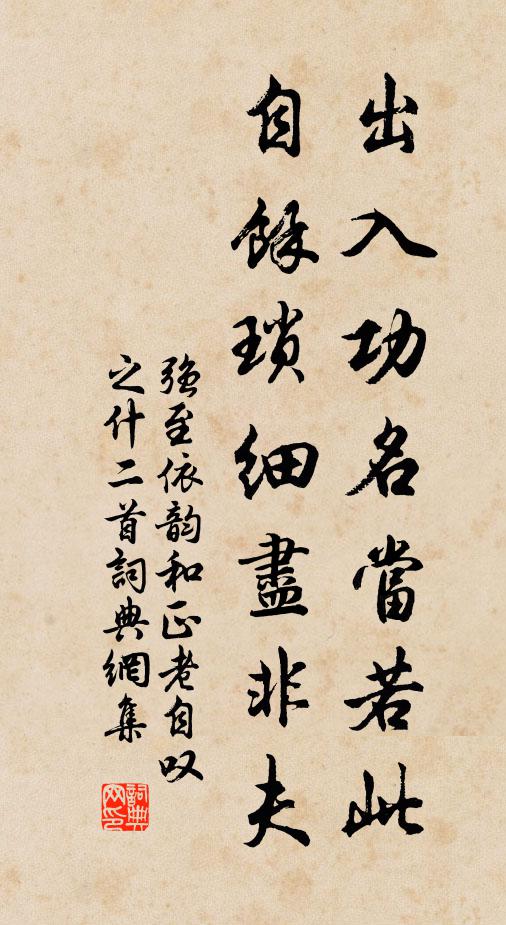 出入功名當若此
自餘瑣細盡非夫
强至依韵和正老自叹
之什二首詞典網集
詞典
网印